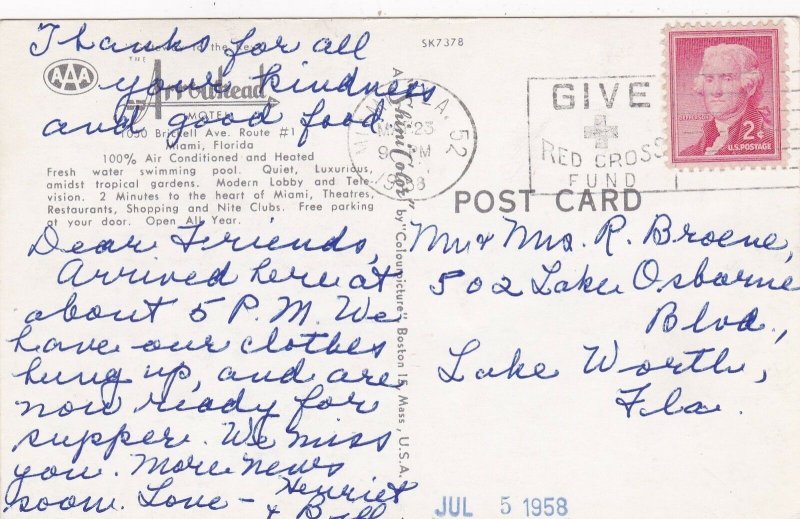 Thanks for all
your kindness
and good food.
AAA
THE
Arrowhead
MOTEL
1050 Brickell Ave. Route #1
Miami, Florida
100% Air Conditioned and Heated
Fresh water swimming pool. Quiet, Luxurious,
amidst tropical gardens. Modern Lobby and Tele-
vision. 2 Minutes to the heart of Miami, Theatres,
Restaurants, Shopping and Nite Clubs. Free parking
at your door. Open All Year.
Dear Friends,
Arrived here at
about 5 P.M. We
have our clothes
hung up, and are
now ready for
supper. We miss
you. More news
soon. Love - Henriet
& Bill
SK7378
"ShiniColor" by "Colourpicture" Boston 15, Mass., U.S.A.
A. 52
23
M
GIVE
RED CROSS
FUND
JEFFERSON
2¢
U.S. POSTAGE
POST CARD
Mr & Mrs. R. Broene,
502 Lake Osborne
Blvd.,
Lake Worth,
Fla.
JUL 5 1958